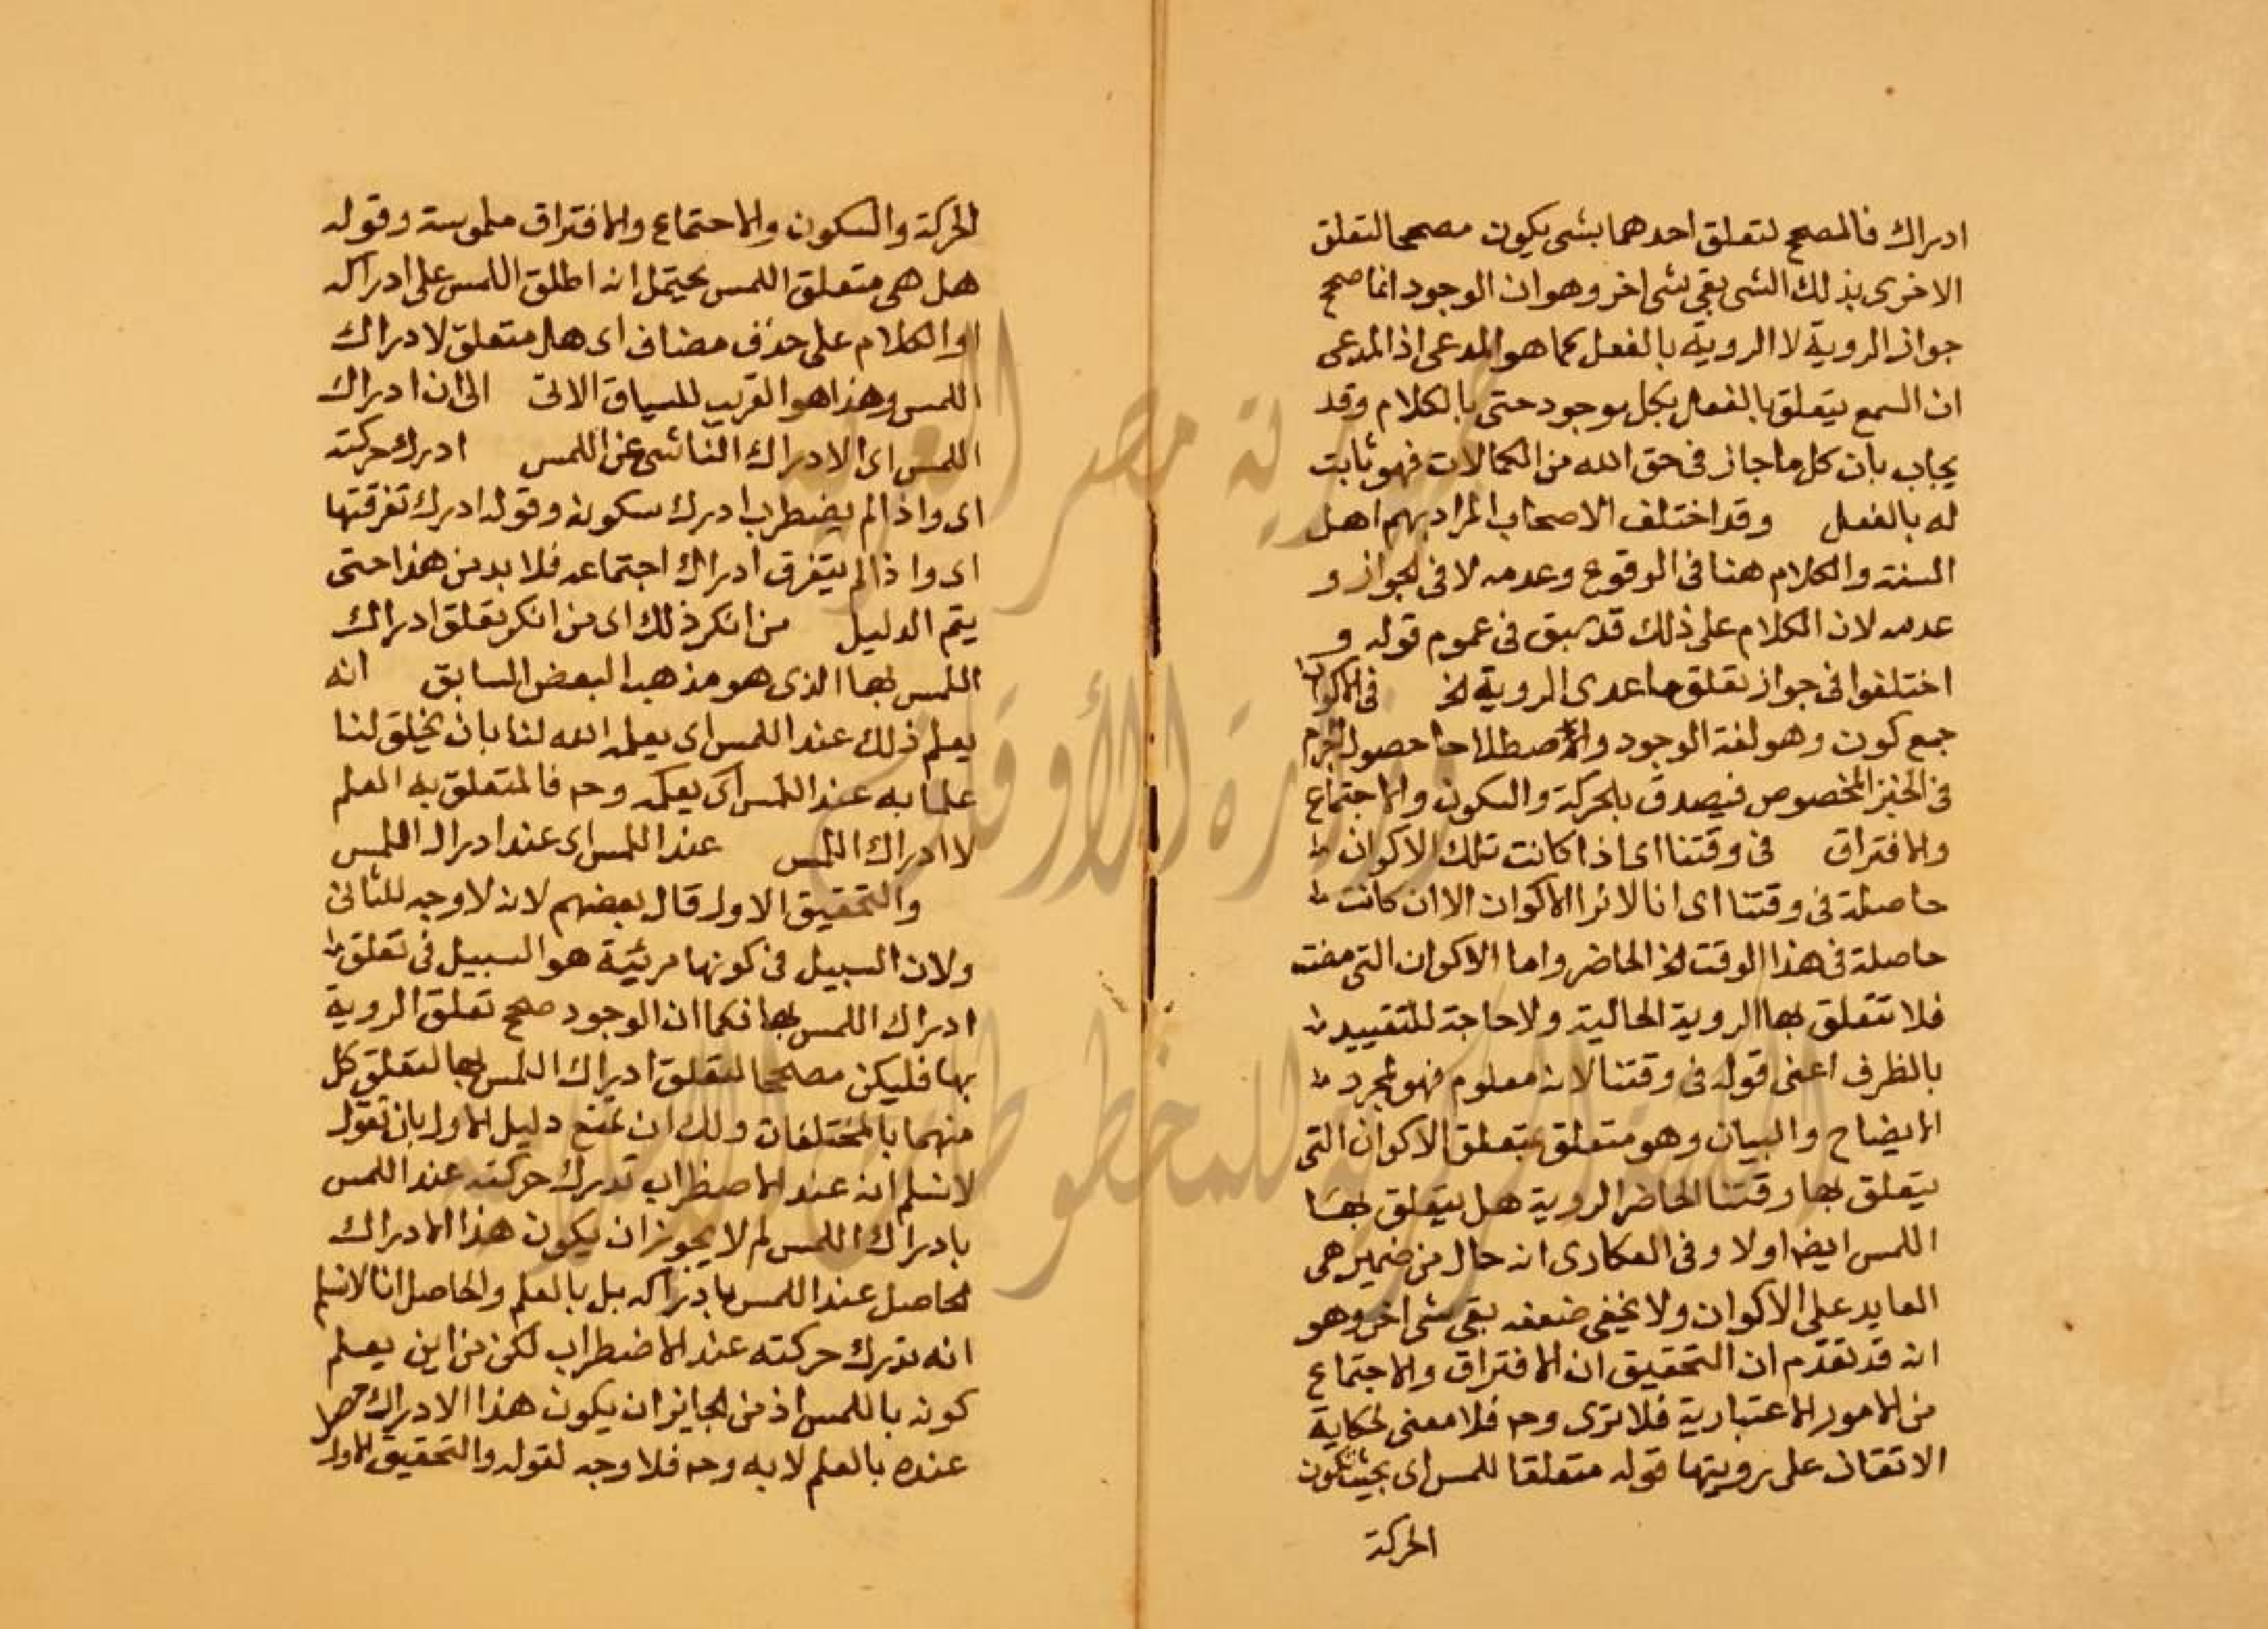 ادراك فالمصحح لتعلق احدهما بشى يكون مصححا لتعلق
الاخرى بذلك الشى بقى شى اخر وهو ان الوجود انما صحح
جواز الروية لا الروية بالفعل كما هو المدعى اذ المدعى
ان السمع يتعلق بالفعل بكل موجود حتى بالكلام وقد
يجاب بان كل ما جاز فى حق الله من الكمالات فهو ثابت
له بالفعل وقد اختلف الاصحاب المراد بهم اهل
السنة والكلام هنا فى الوقوع وعدمه لا فى الجواز و
عدمه لان الكلام على ذلك قد سبق فى عموم قوله و
اختلفوا فى جواز تعلق ما عدى الروية الخ فى الاكوان
جمع كون وهو لغة الوجود والاصطلاحا حصول الجرم
فى الحيز المخصوص فيصدق بالحركة والسكون والاجتماع
والافتراق فى وقتنا اى اذا كانت تلك الاكوان
حاصلة فى وقتنا اى انا لا نرا الاكوان الا ان كانت
حاصلة فى هذا الوقت الحاضر واما الاكوان التى مضت
فلا تتعلق بها الروية الحالية ولا حاجة للتقييد
بالظرف اعنى قوله فى وقتنا لانه معلوم فهو لمجرد
الايضاح والبيان وهو متعلق بتعلق الاكوان التى
يتعلق بها وقتنا الحاضر الروية هل يتعلق بها
اللمس ايضا اولا وفى العكارى انه حال من ضمير هى
العايد على الاكوان ولا يخفى ضعفه بقى شى اخر وهو
انه قد تقدم ان التحقيق ان الافتراق والاجتماع
من الامور الاعتبارية فلا ترى وح فلا معنى لحكاية
الاتفاق على رويتها قوله متعلقا للمس اى بحيث تكون
الحركة
الحركة والسكون والاجتماع والافتراق ملموسة وقوله
هل هى متعلق اللمس يحتمل انه اطلق اللمس على ادراكه
او الكلام على حذف مضاف اى هل متعلق لادراك
اللمس وهذا هو القريب للسياق الاتى الى ان ادراك
اللمس اى الادراك الناشى عن اللمس ادرك حركته
اى واذا لم يضطرب ادرك سكونه وقوله ادرك تفرقتها
اى واذا لم يتفرق ادراك اجتماعه فلا بد من هذا حتى
يتم الدليل من انكر ذلك اى من انكر تعلق ادراك
اللمس بها الذى هو مذهب البعض السابق انه
يعلم ذلك عند اللمس اى يعلمه الله لنا بان يخلق لنا
علما به عند اللمس اى يعلمه وح فالمتعلق به العلم
لا ادراك اللمس عند اللمس اى عند ادراك اللمس
والتحقيق الاول قال بعضهم لانه لا وجه للثانى
ولان السبيل فى كونها مرئية هو السبيل فى تعلق
ادراك اللمس بها فكما ان الوجود صحح تعلق الروية
بها فليكن مصححا لتعلق ادراك اللمس بها لتعلق كل
منهما بالمختلفات ولك ان تمنع دليل الاول بان تقول
لا نسلم انه عند الاضطراب تدرك حركته عند اللمس
بادراك اللمس لم لا يجوز ان يكون هذا الادراك
الحاصل عند اللمس بادراكه بل بالعلم والحاصل انا لا نسلم
انه تدرك حركته عند الاضطراب لكن من اين يعلم
كونه باللمس اذ من الجايز ان يكون هذا الادراك حصل
عنده بالعلم لا به وح فلا وجه لقوله والتحقيق الاول